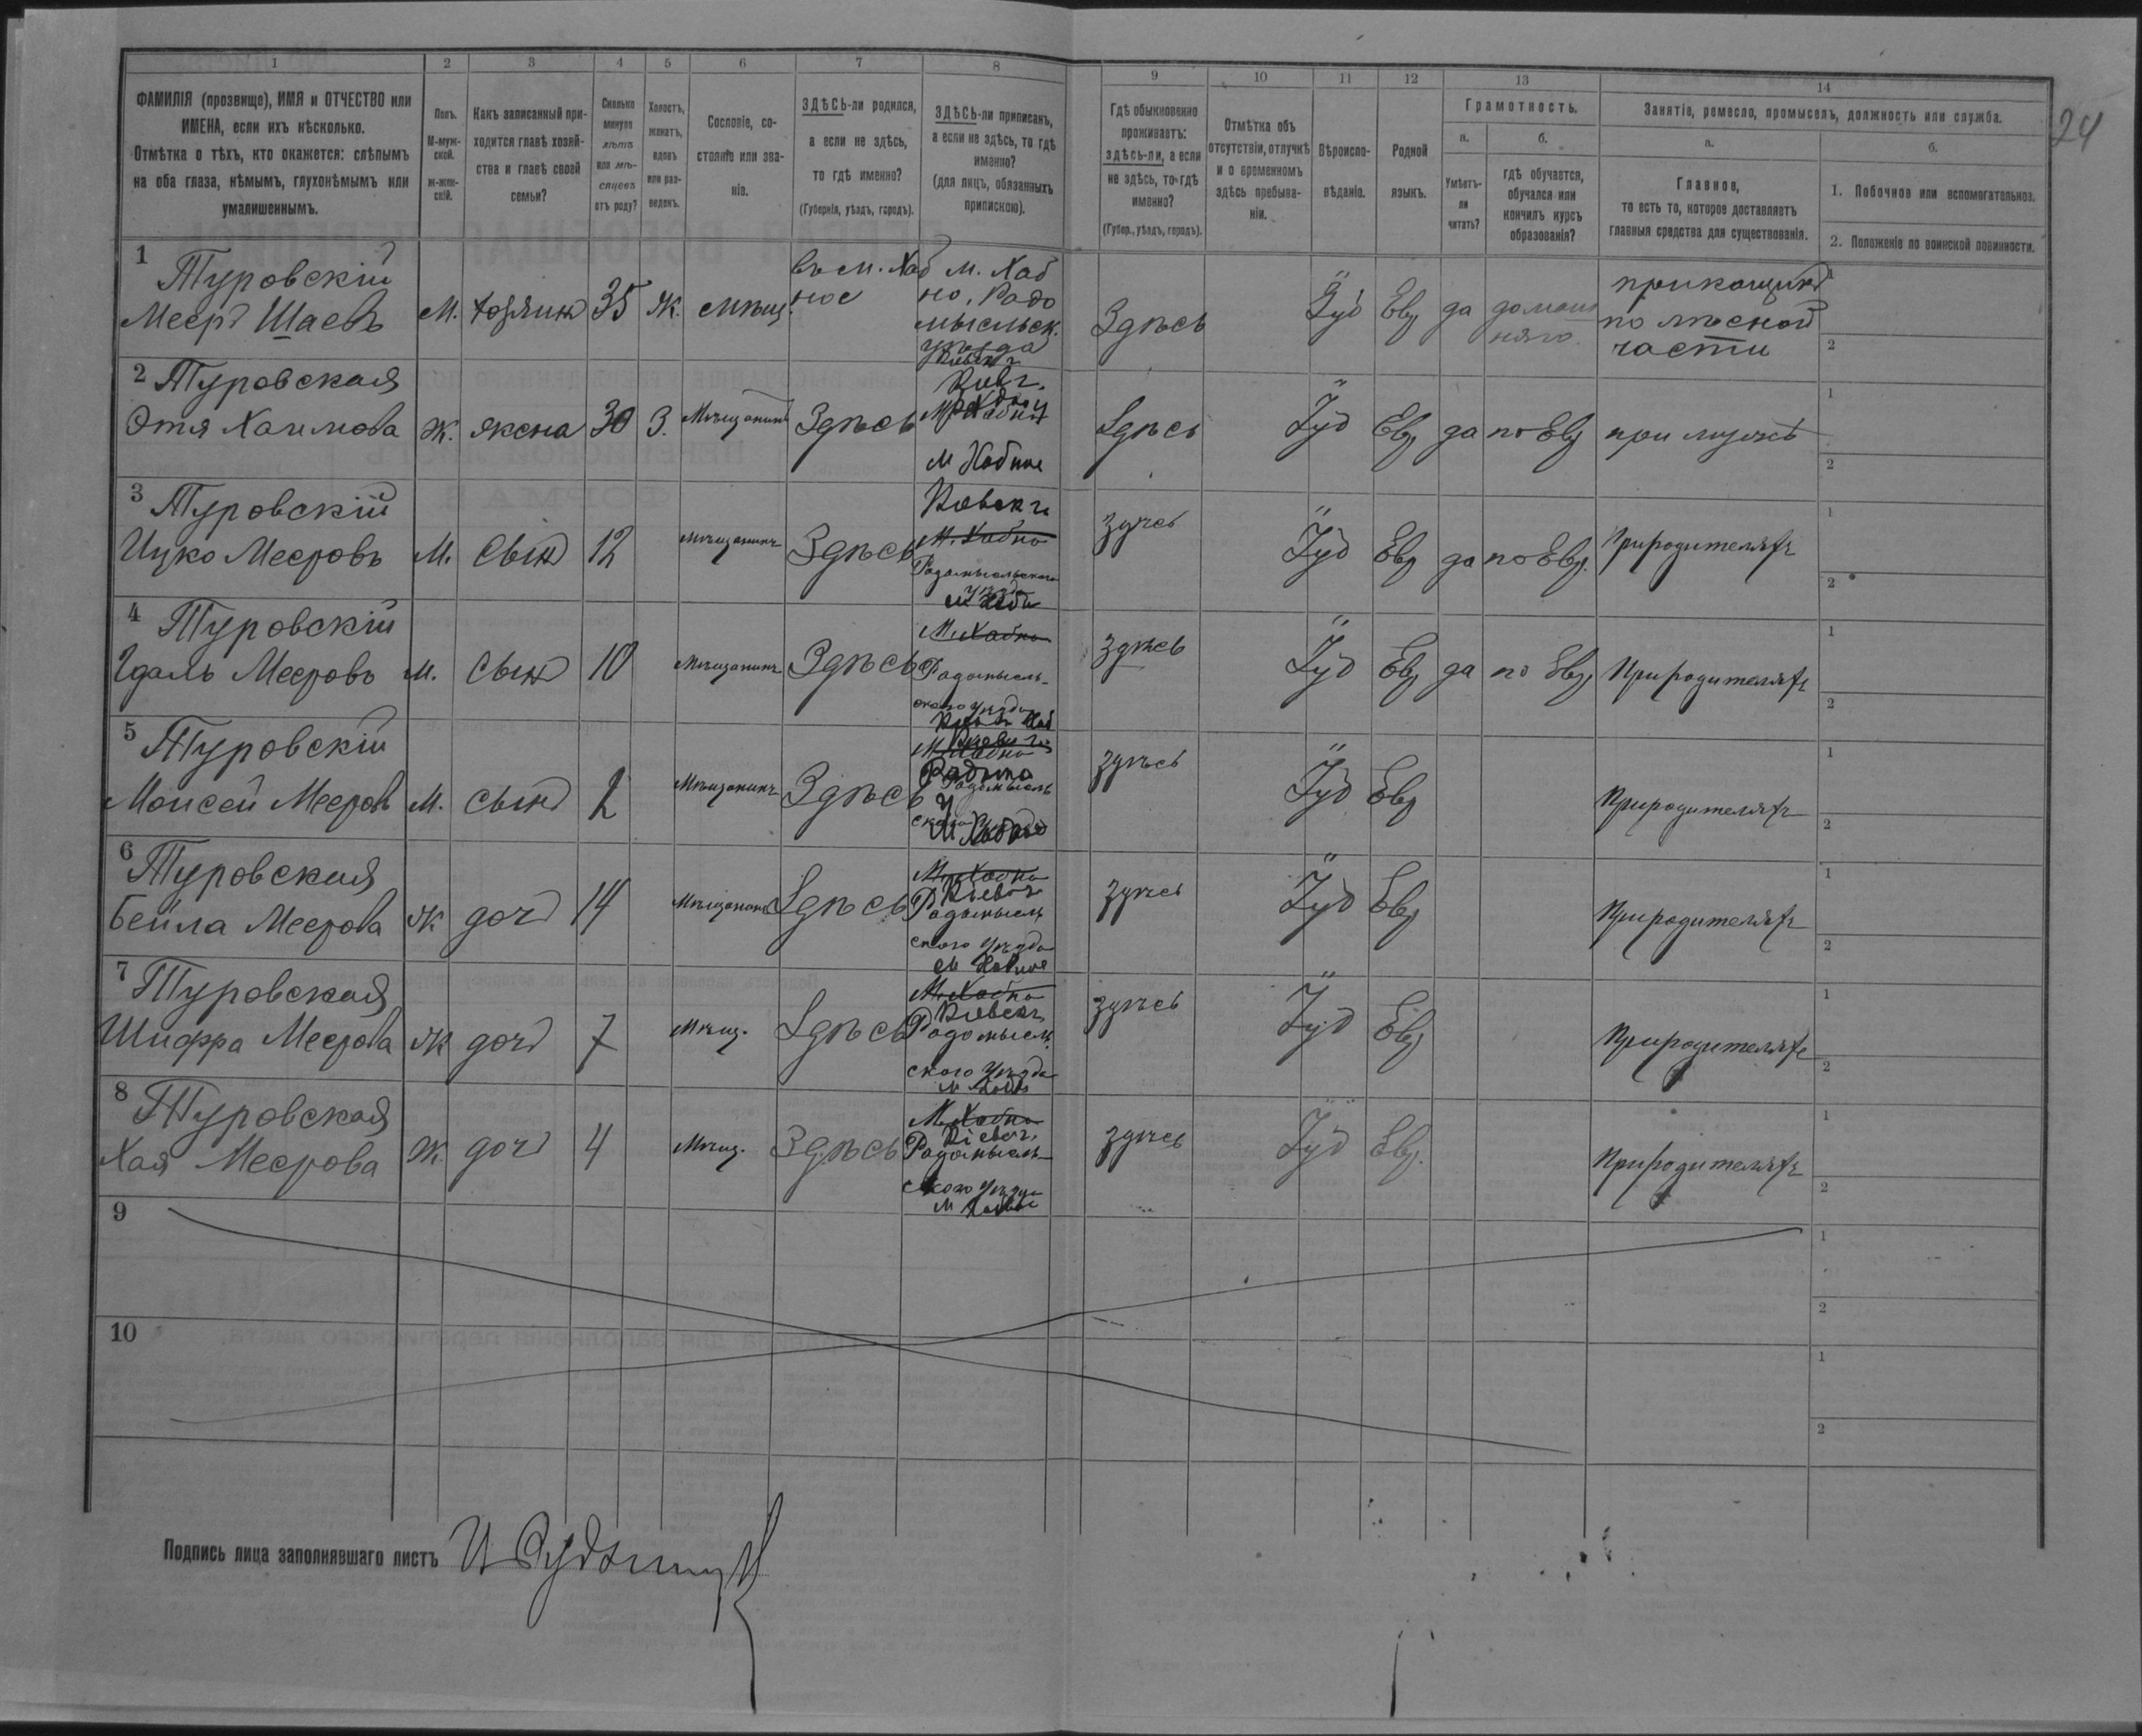 1 2 3 4 5 6 7 8 9 10 11 12 13 14
24
ФАМИЛІЯ (прозвище), ИМЯ и ОТЧЕСТВО или
ИМЕНА, если ихъ нѣсколько.
Отмѣтка о тѣхъ, кто окажется: слѣпымъ
на оба глаза, нѣмымъ, глухонѣмымъ или
умалишеннымъ.
Полъ.
М-муж-
ской.
ж-жен-
скій.
Какъ записанный при-
ходится главѣ хозяй-
ства и главѣ своей
семьи?
Сколько
минуло
лѣтъ
или мѣ-
сяцевъ
отъ роду?
Холостъ,
женатъ,
вдовъ
или раз-
веденъ.
Сословіе, со-
стояніе или зва-
ніе.
ЗДѢСЬ-ли родился,
а если не здѣсь,
то гдѣ именно?
(Губернія, уѣздъ, городъ).
ЗДѢСЬ-ли приписанъ,
а если не здѣсь, то гдѣ
именно?
(для лицъ, обязанныхъ
припискою).
Гдѣ обыкновенно
проживаетъ:
здѣсь-ли, а если
не здѣсь, то гдѣ
именно?
(Губер., уѣздъ, городъ).
Отмѣтка объ
отсутствіи, отлучкѣ
и о временномъ
здѣсь пребыва-
ніи.
Вѣроиспо-
вѣданіе.
Родной
языкъ.
Грамотность.
а.
Умѣетъ-
ли
читать?
б.
гдѣ обучается,
обучался или
кончилъ курсъ
образованія?
Занятіе, ремесло, промыселъ, должность или служба.
а.
Главное,
то есть то, которое доставляетъ
главныя средства для существованія.
б.
1. Побочное или вспомогательное.
2. Положеніе по воинской повинности.
1 Туровскій
Мееръ Шаевъ М. хозяинъ 35 Ж. мѣщ.
въ м. Хаб
ное
м. Хаб
но, Радо
мысльск.
уѣзда
Здѣсь Іуд Евр да домаш
няго.
прикащикъ
по лѣсной
части
1
2
2 Туровская
Этя Хаимова Ж. жена 30 З. Мѣщанинъ Здѣсь
м Хабное
Здѣсь Іуд Евр да по Евр при мужѣ
1
2
3 Туровскій
Ицко Мееровъ М. Сынъ 12 мѣщанинъ Здѣсь
Кіевск г.
М. Хабно
Радомысльскаго
здѣсь Іуд Евр да по Евр. При родителяхъ
1
2
4 Туровскій
Гдаль Мееровъ М. Сынъ 10 Мѣщанинъ Здѣсь
М. Хабно
Радомысль-
скаго уѣзда
здѣсь Іуд Евр да по Евр. При родителяхъ
1
2
5 Туровскій
Моисей Мееровъ М. сынъ 2 Мѣщанинъ Здѣсь
здѣсь Іуд Евр При родителяхъ
1
2
6 Туровская
Бейла Меерова Ж дочь 14 Мѣщанинъ Здѣсь
М. Хабно
Кіевск г.
Радомысль
ского Уѣзда
м Хабное
здѣсь Іуд Евр При родителяхъ
1
2
7 Туровская
Шифра Меерова Ж дочь 7 Мѣщ. Здѣсь
М. Хабно
Кіевск г.
Радомысль
ского Уѣзда
здѣсь Іуд Евр При родителяхъ
1
2
8 Туровская
Хая Меерова Ж. дочь 4 Мѣщ. Здѣсь
М. Хабно
Кіевск г.
Радомысль-
ского Уѣзда
м Хабное
здѣсь Іуд Евр. При родителяхъ
1
2
9
1
2
10
1
2
Подпись лица заполнявшаго листъ